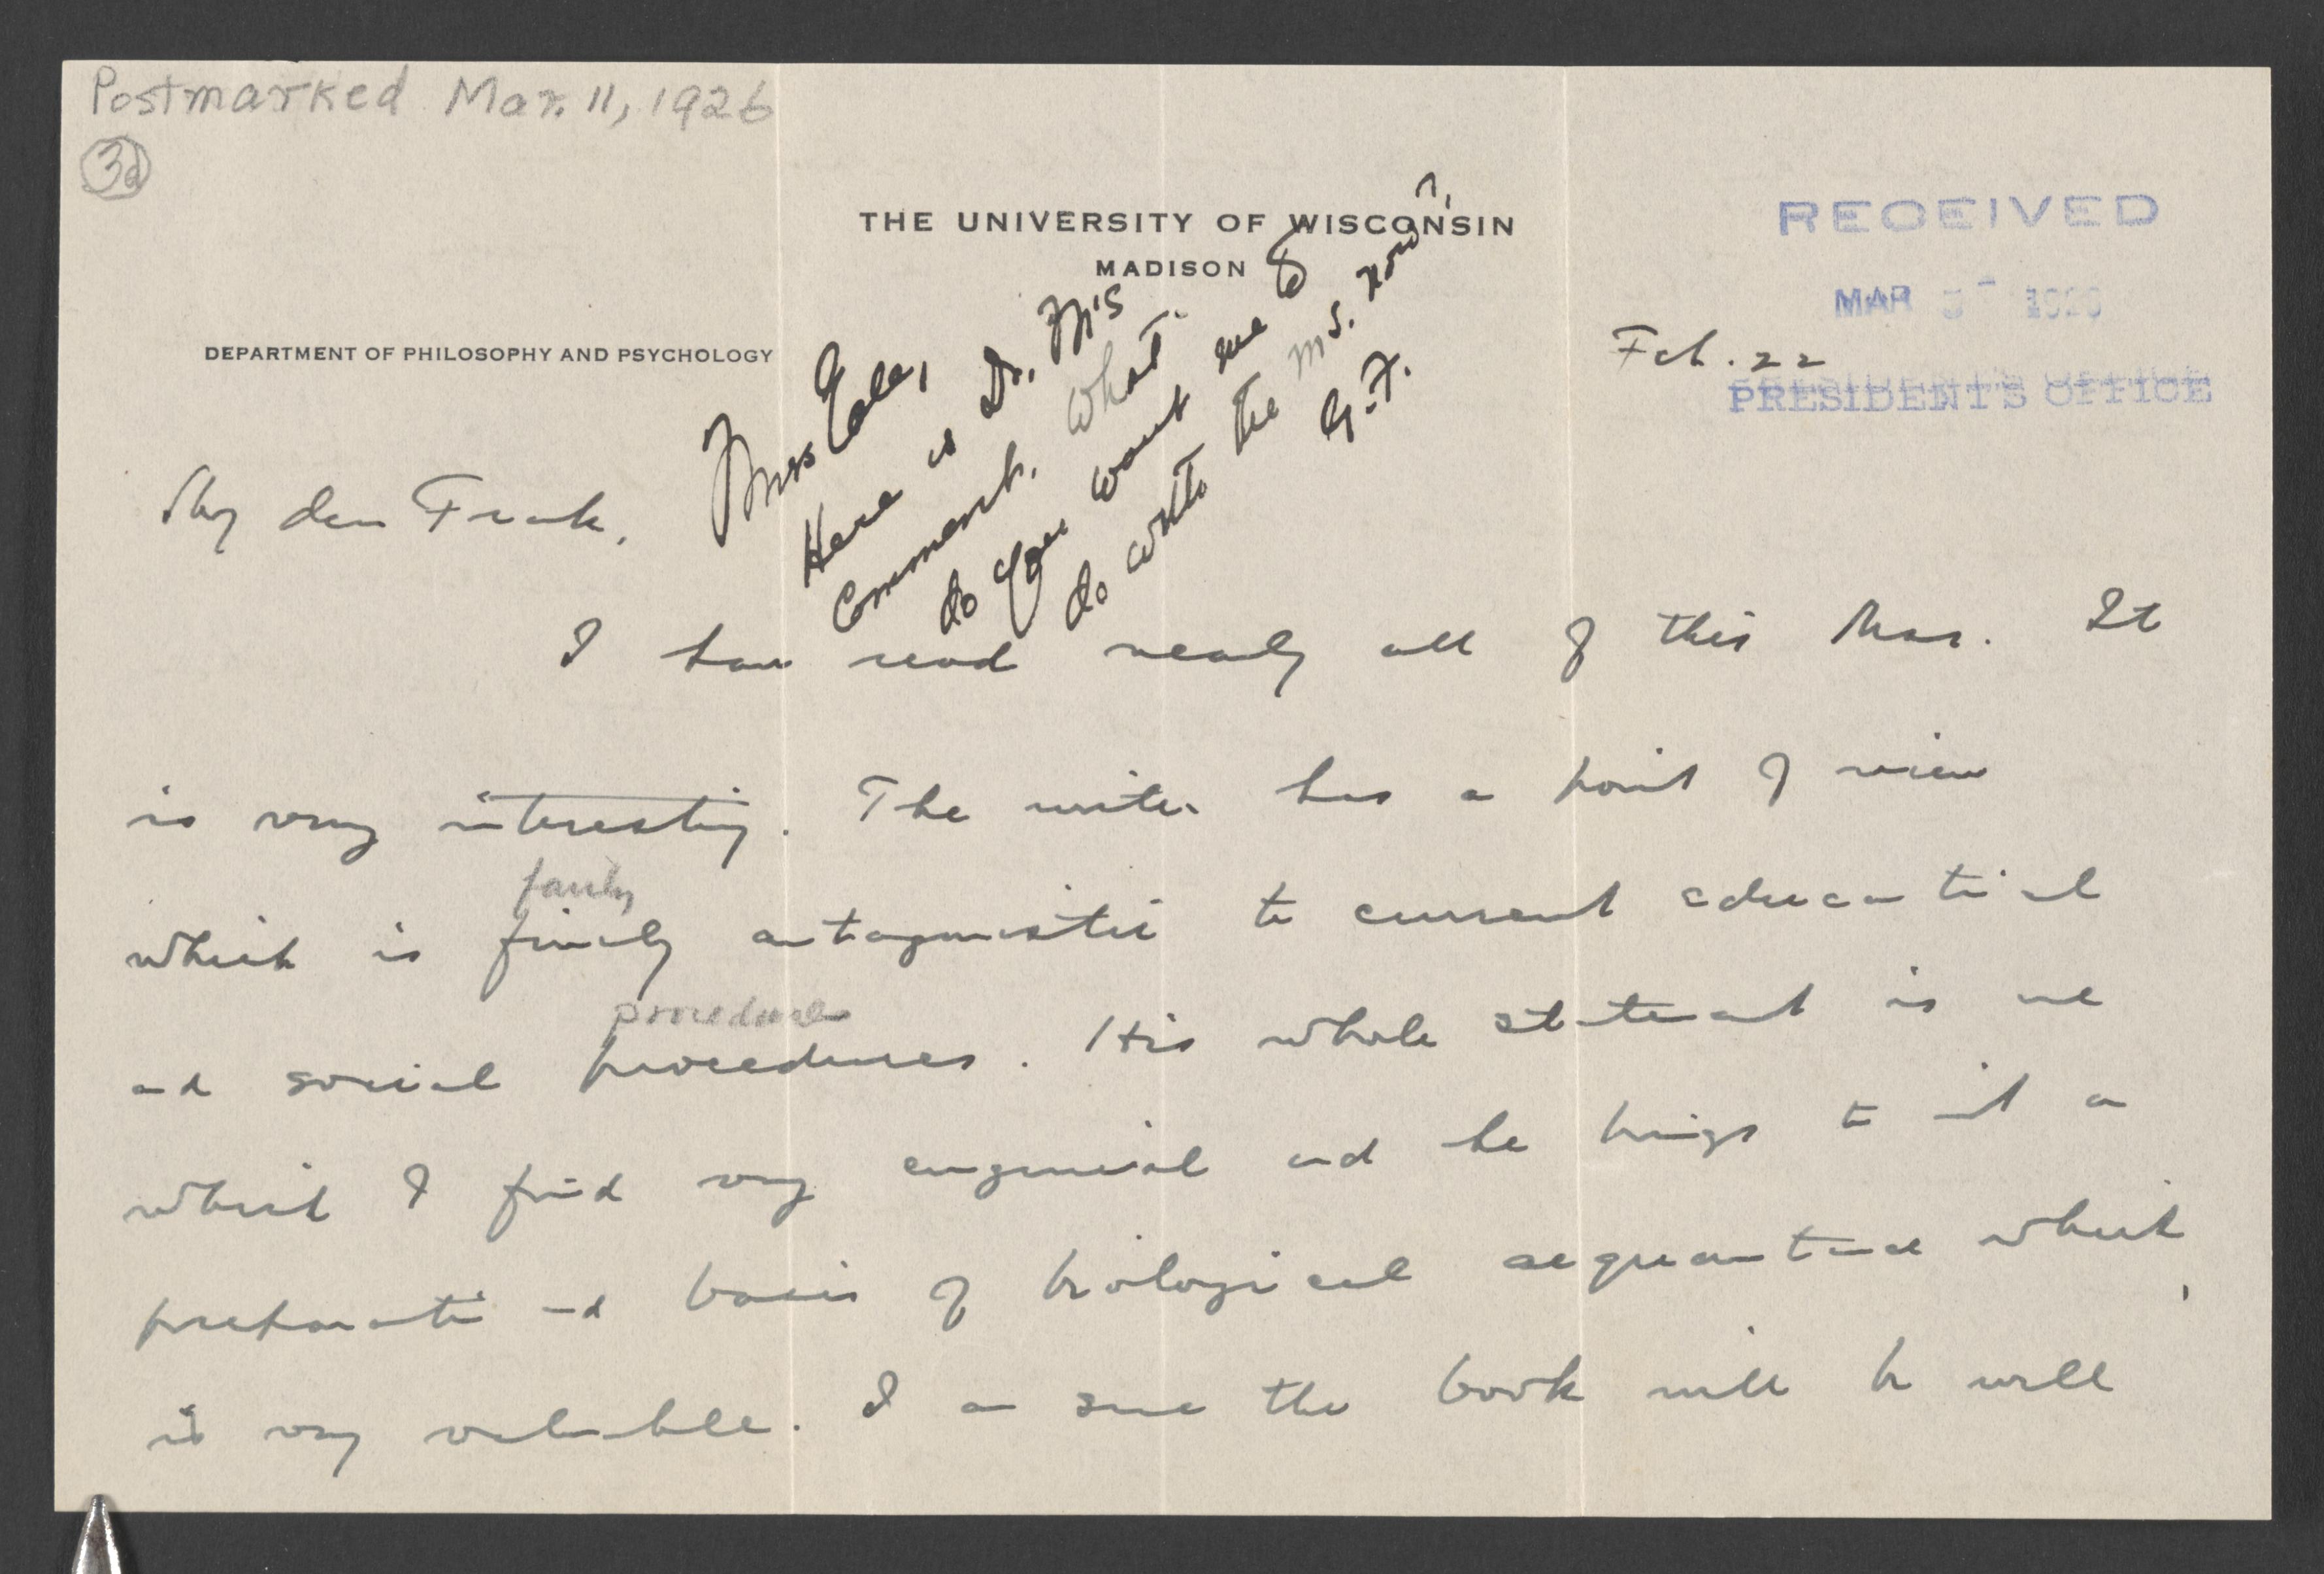 Postmarked Mar. 11, 1926
3d
THE UNIVERSITY OF WISCONSIN
MADISON
DEPARTMENT OF PHILOSOPHY AND PSYCHOLOGY
RECEIVED
MAR 1926
PRESIDENT'S OFFICE
Feb. 22
Miss
Here is Dr. M's
Comment. What
do you want me to
do with the ms. now?
G. F.
My dear Frank,
I have read nearly all of this Mss. It
is very interesting. The writer has a point of view
fairly
which is finely antagonistic to current educational
procedures
and social procedures. His whole statement is one
which I find very congenial and he brings to it a
preparation and basis of biological acquaintance which
is very valuable. I am sure the book will be well